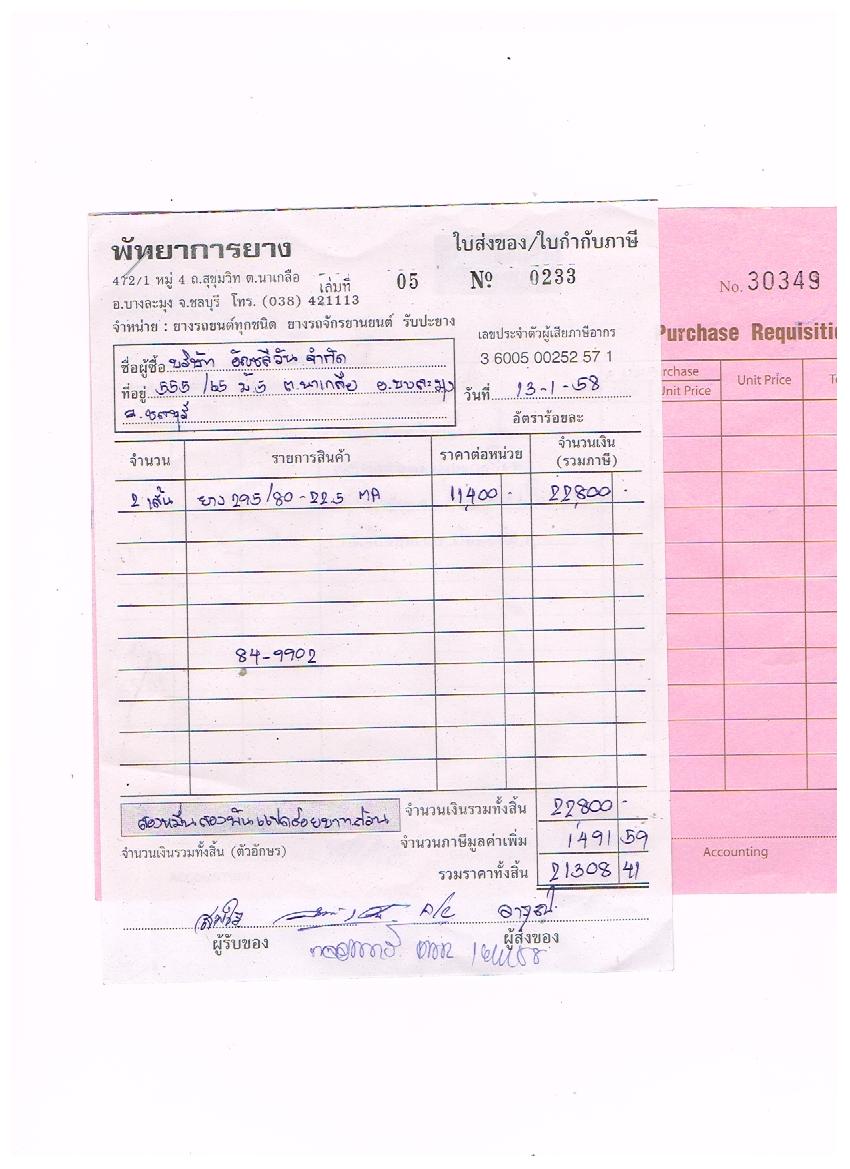 พัทยาการยาง
ใบส่งของ/ใบกำกับภาษี
472/1 หมู่ 4 ถ.สุขุมวิท ต.นาเกลือ
เล่มที่ 05 Nº 0233
อ.บางละมุง จ.ชลบุรี โทร. (038) 421113
จำหน่าย : ยางรถยนต์ทุกชนิด ยางรถจักรยานยนต์ รับปะยาง
เลขประจำตัวผู้เสียภาษีอากร
3 6005 00252 57 1
ชื่อผู้ซื้อ บริษัท อัญชลีวัน จำกัด
ที่อยู่ 555/65 ม.5 ต.นาเกลือ อ.บางละมุง
จ.ชลบุรี
วันที่ 13-1-58
อัตราร้อยละ
จำนวน รายการสินค้า ราคาต่อหน่วย จำนวนเงิน (รวมภาษี)
2 เส้น ยาง 295/80-22.5 MA 11,400 - 22,800 -
84-9902
สองหมื่นสองพันแปดร้อยบาทถ้วน
จำนวนเงินรวมทั้งสิ้น 22,800 -
จำนวนเงินรวมทั้งสิ้น (ตัวอักษร)
จำนวนภาษีมูลค่าเพิ่ม 1491 59
รวมราคาทั้งสิ้น 21308 41
ผู้รับของ
ผู้ส่งของ
No. 30349
Purchase Requisitio
rchase
Unit Price
Unit Price
To
Accounting